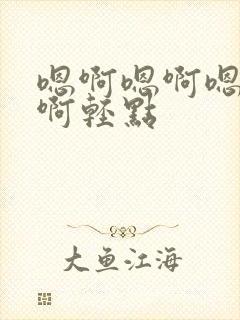 嗯啊嗯啊嗯
啊轻點
大鱼江海